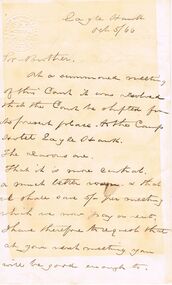 Eagle Hawk
Oct 5/66
Brother.
At a summoned meeting
of this Court it was resolved
that the Court be shifted from
its present place. to the Camp
Hotel Eagle Hawk
The reasons are.
That it is more central.
a much better room & that
we shall save 2/- per meeting
which we now pay as rent,
I have therefore to request that
at your next meeting you
will be good enough to.